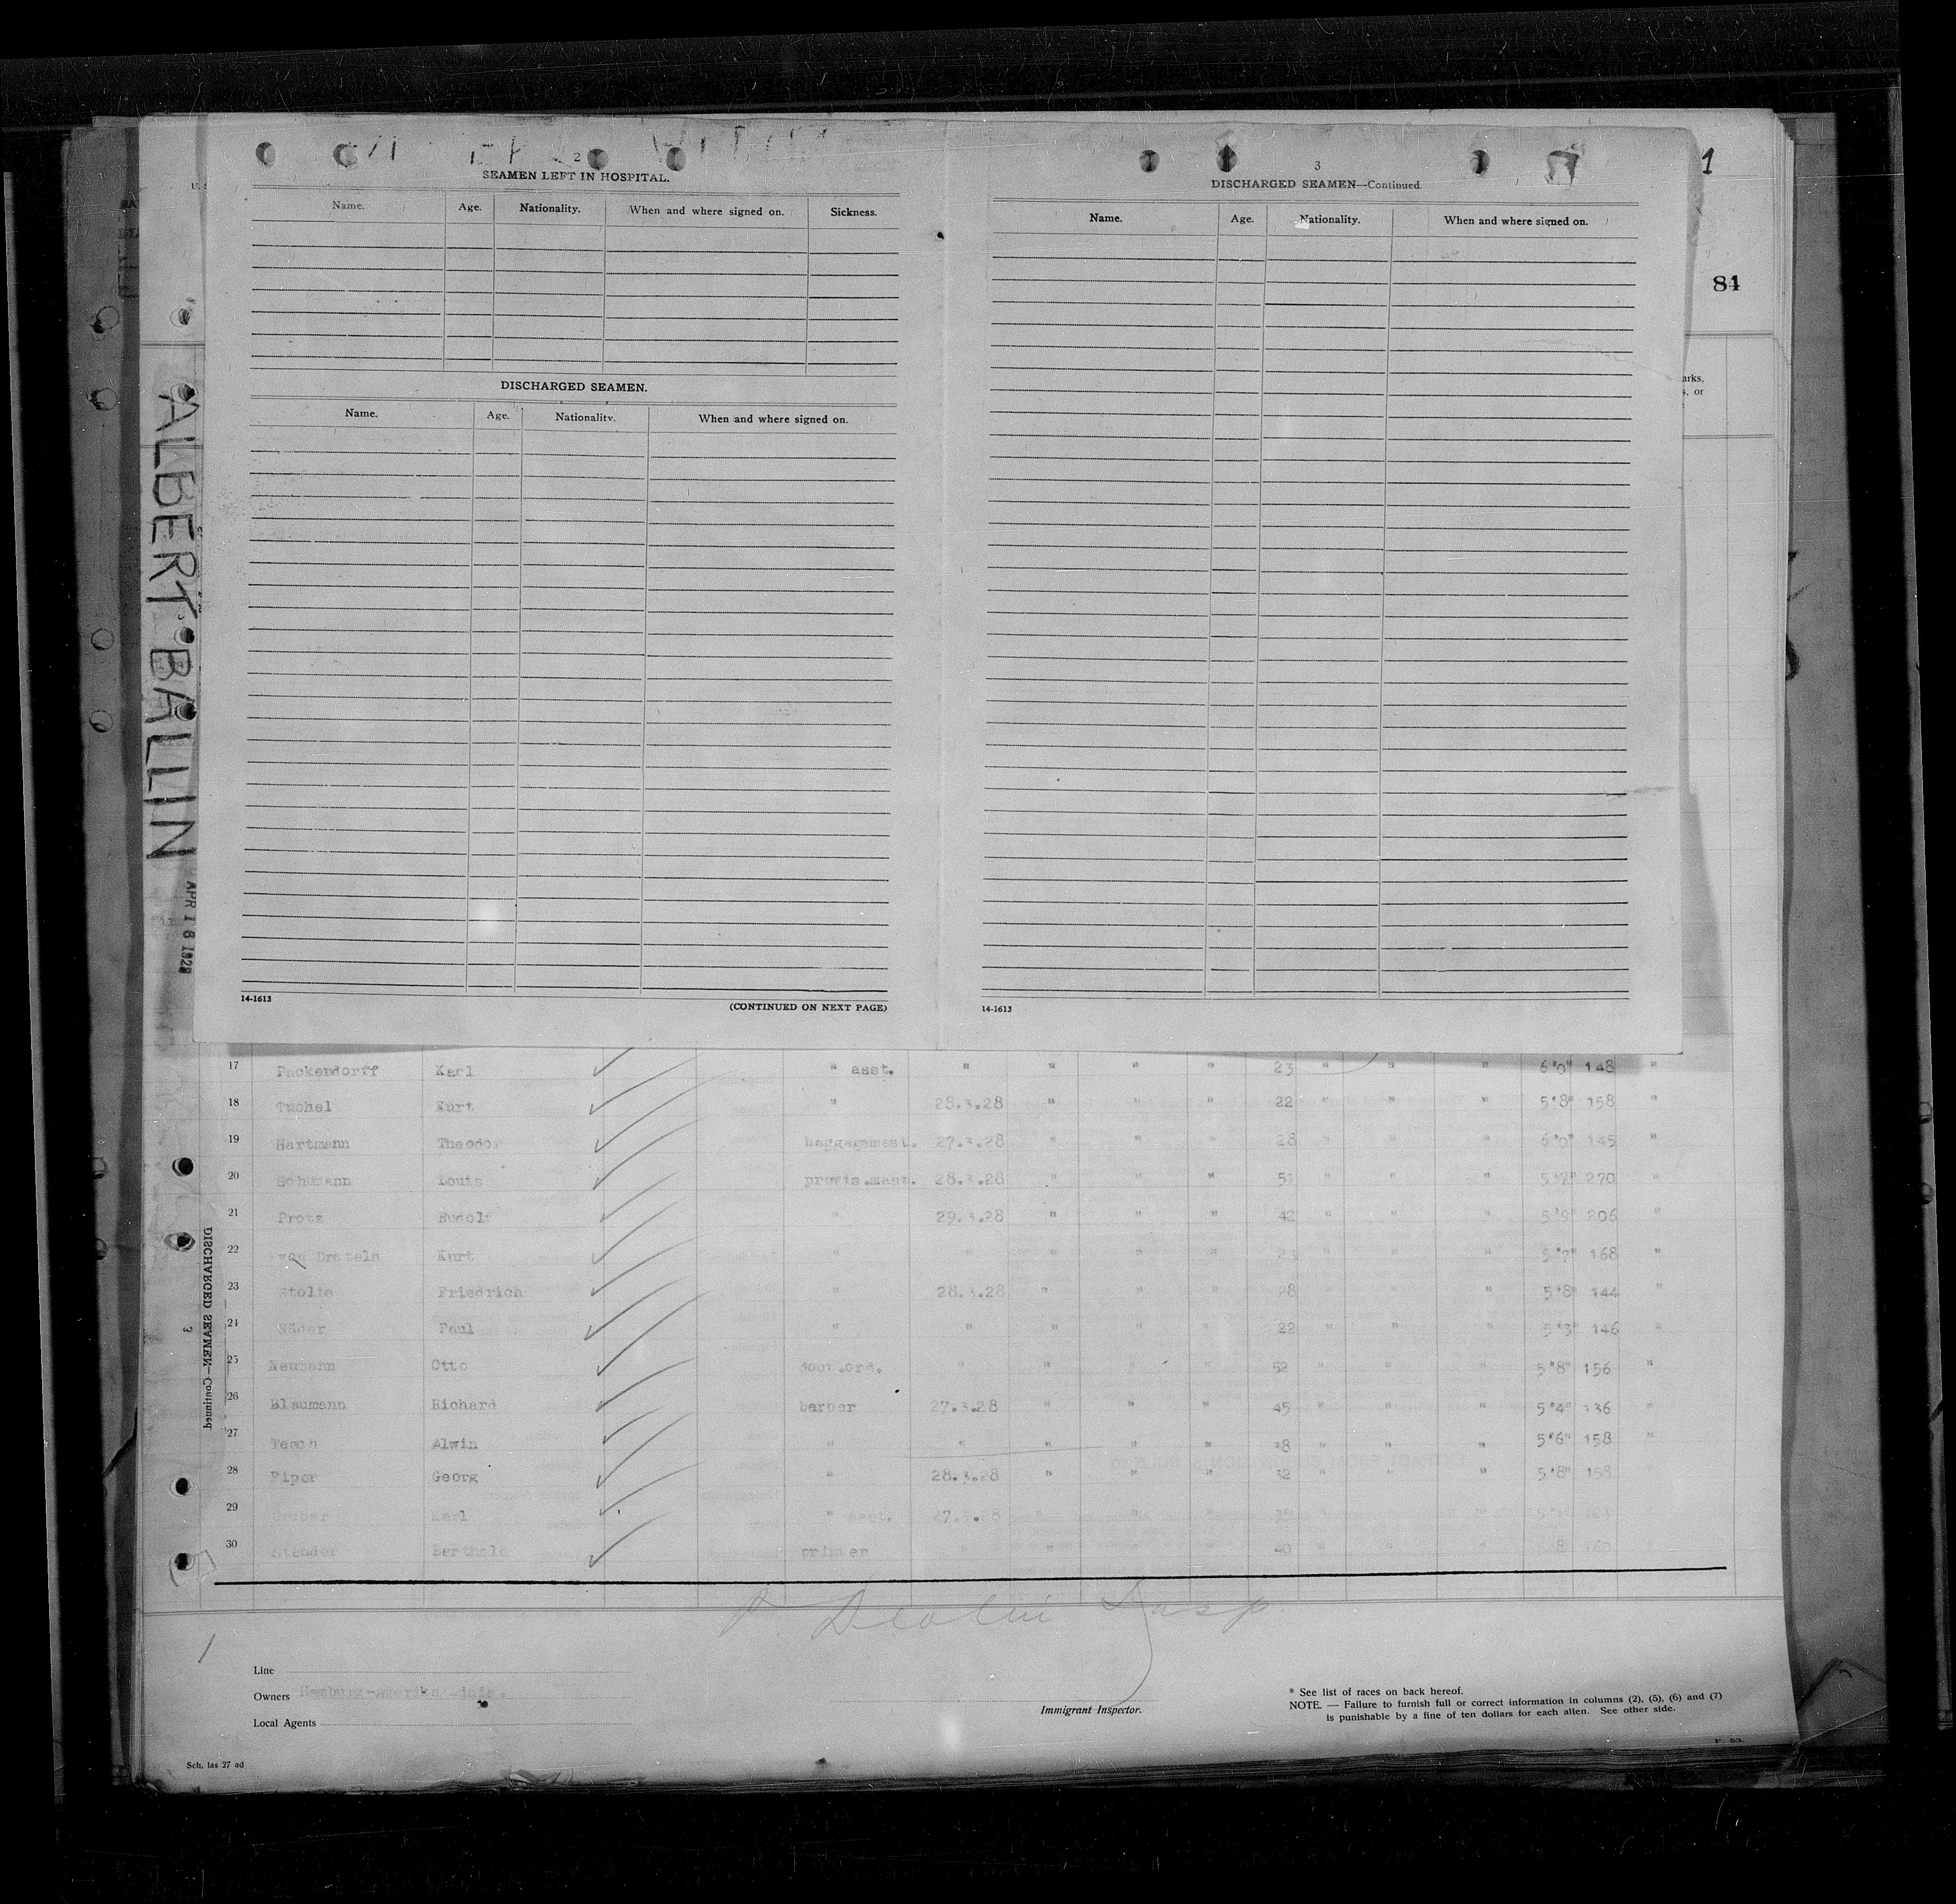 2
SEAMEN LEFT IN HOSPITAL.
Name. Age. Nationality. When and where signed on. Sickness.
DISCHARGED SEAMEN.
Name. Age. Nationality. When and where signed on.
14-1613 (CONTINUED ON NEXT PAGE)
3
DISCHARGED SEAMEN—Continued.
Name. Age. Nationality. When and where signed on.
14-1613
1
84
arks,
s, or
ALBERT BALLIN
APR 18 1928
DISCHARGED SEAMEN—Continued
3
17 Packendorff Karl " asst. " " " " 23 " " " 6'0" 148 "
18 Tuchel Kurt " 28.3.28 " " " 22 " " " 5'8" 158 "
19 Hartmann Theodor baggagemast. 27.3.28 " " " 28 " " " 6'0" 145 "
20 Schumann Louis provis.mast. 28.3.28 " " " " " " 5'7" 270 "
21 Rudolf " 29.3.28 " " " 42 " " " 5'9" 206 "
22 von Drateln Kurt " " " " " " " " 168 "
23 Stolte Friedrich " 28.3.28 " " " 28 " " " 5'8" 144 "
24 Paul " " " " " 22 " " " 5'3" 146 "
25 Neumann Otto " " " " 52 " " " 5'8" 156 "
26 Blaumann Richard barber 27.3.28 " " " 45 " " " 5'4" 136 "
27 Tesch Alwin " " " " " " " " 5'6" 158 "
28 Piper Georg " 28.3.28 " " " 32 " " " 5'8" 158
29 Gruber Karl " asst. 27.3.28 " " " " " "
30 Stender Berthold printer " " " " 40 " " "
Line
Owners Hamburg-Amerika Linie.
Local Agents
Immigrant Inspector.
* See list of races on back hereof.
NOTE. — Failure to furnish full or correct information in columns (2), (5), (6) and (7)
is punishable by a fine of ten dollars for each alien. See other side.
Sch. las 27 ad